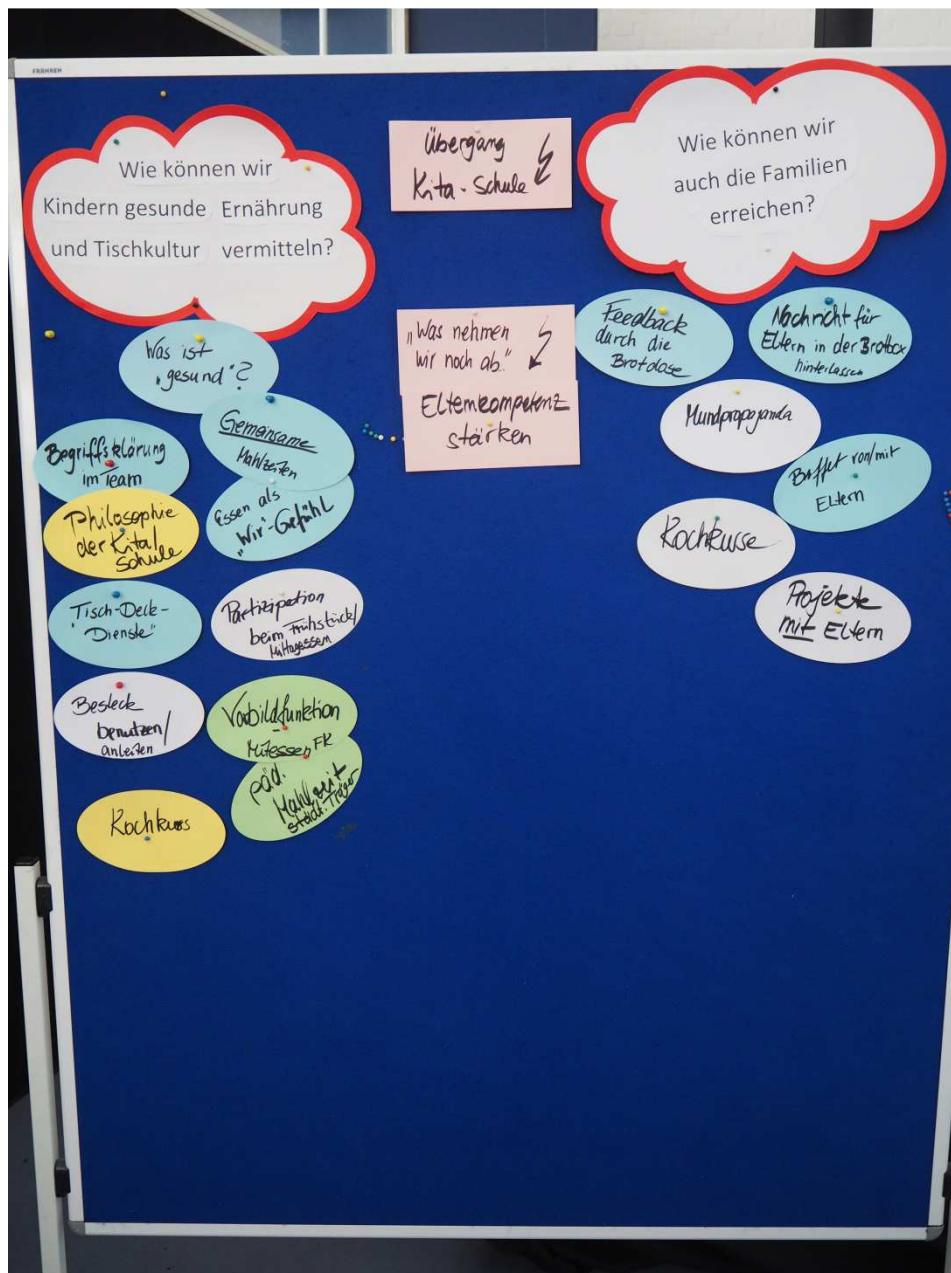 FRANKEN
Wie können wir
Kindern gesunde Ernährung
und Tischkultur vermitteln?
Was ist
„gesund"?
Gemeinsame
Mahlzeiten
Begriffsklärung
im Team
Essen als
„Wir"-Gefühl
Philosophie
der Kita/
Schule
Tisch-Deck-
Dienste"
Partizipation
beim Frühstück/
Mittagessen
Besteck
benutzen/
anleiten
Vorbildfunktion
Mitessen FK
päd.
Mahlzeit
städt. Träger
Kochkurs
Übergang
Kita-Schule
„Was nehmen
wir noch ab."
Elternkompetenz
stärken
Wie können wir
auch die Familien
erreichen?
Feedback
durch die
Brotdose
Nachricht für
Eltern in der Brotbox
hinterlassen
Mundpropaganda
Buffet von/mit
Eltern
Kochkurse
Projekte
mit Eltern